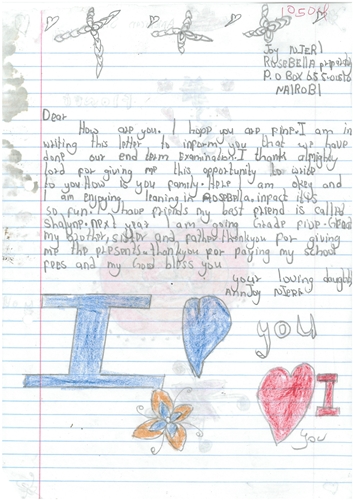 1050H
Joy NJERI
ROSEBELLA preparatory
P.O BOX 655-01030
NAIROBI
Dear
How are you. I hope you are fine. I am in
writing this letter to inform you that we have
done our end term Examination. I thanks almighty
lord for giving me this opportunity to write
to you. How is you family. Here I am okey and
I am enjoying learning in ROSEBELLA. inpact it is
so fun. I have friends my best friend is called
Shalyne. next year I am going Grade five. Greet
my brother, sister and father. thankyou for giving
me the presents. thankyou for paying my school
fees and my God bless you
your loving daughter
AnnJoy NJERI
I you
I
you